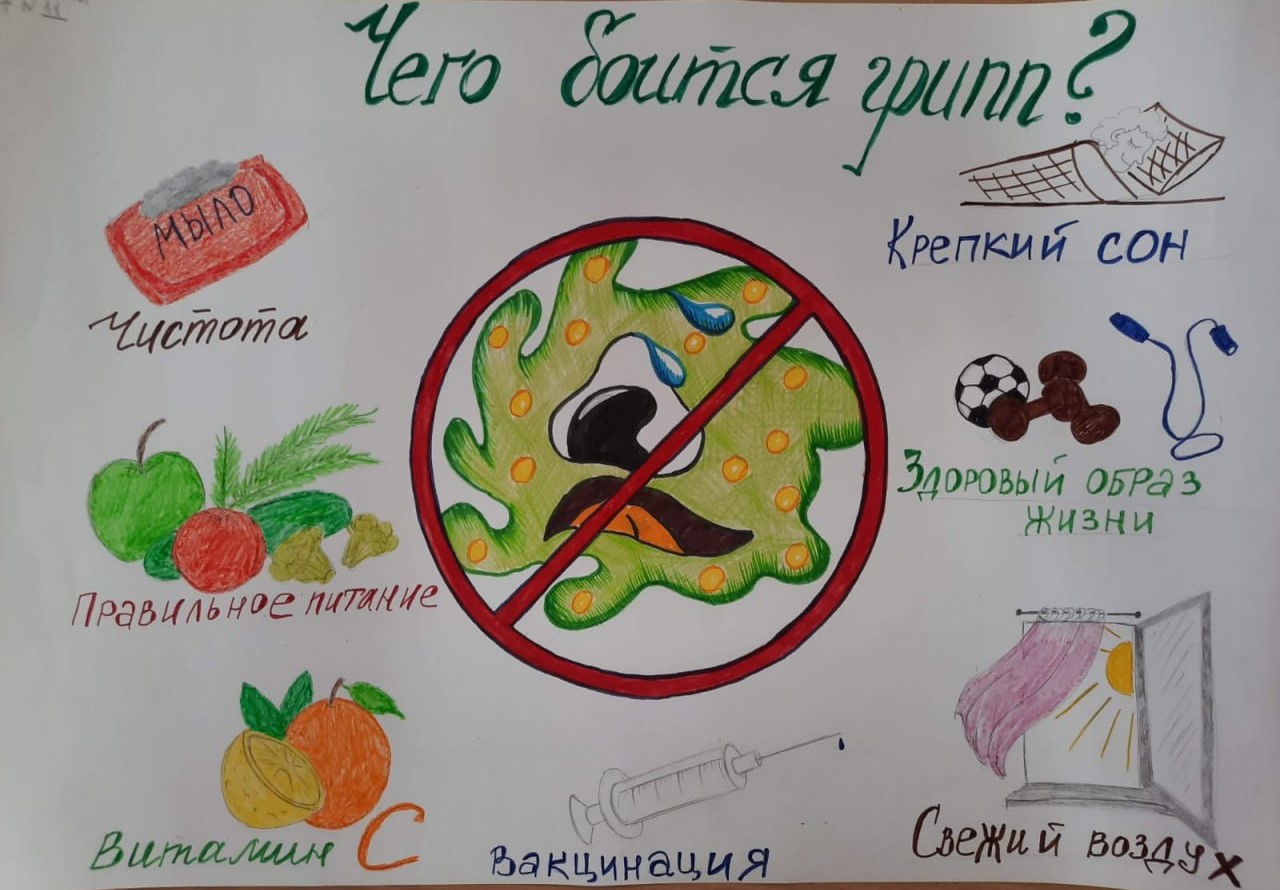 № 11
Чего боится грипп?
МЫЛО
Чистота
Крепкий сон
Здоровый образ
жизни
Правильное питание
Витамин С
Вакцинация
Свежий воздух